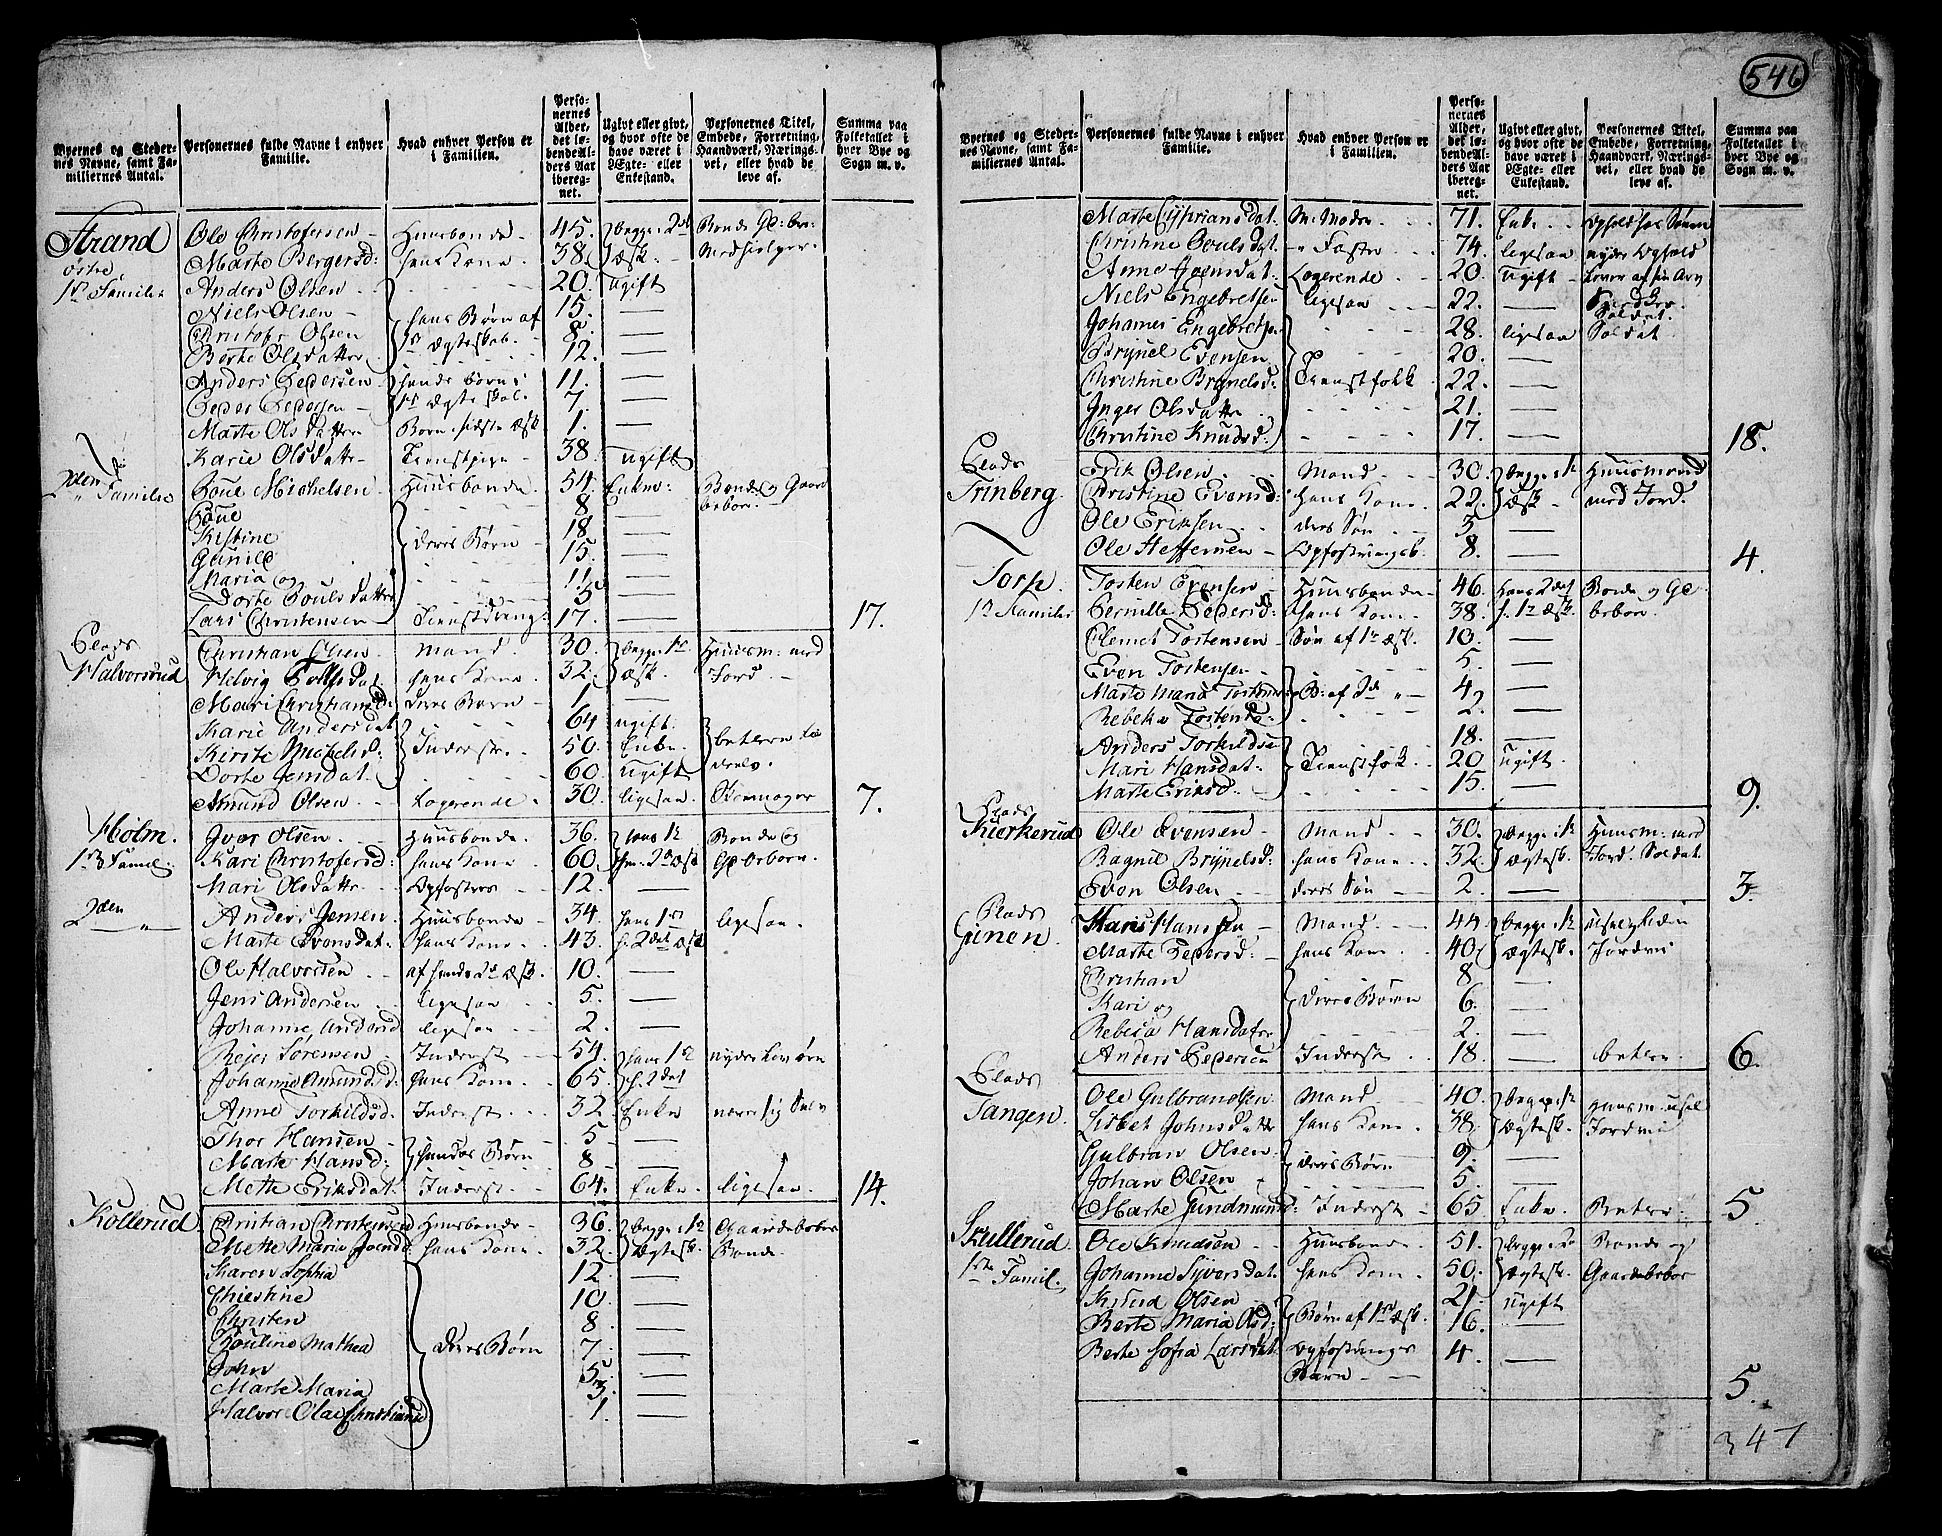 Byernes og Steder-
nes Navne, samt Fa-
miliernes Antal.
Personernes fulde Navne i enhver
Familie.
Hvad enhver Person er
i Familien.
Perso-
nernes
Alder,
det lø-
bende Al-
ders Aar
ibereg-
net.
Ugivt eller givt,
og hvor ofte de
have været i
Ægte- eller
Enkestand.
Personernes Titel,
Embede, Forretning,
Haandværk, Nærings-
vei, eller hvad de
leve af.
Summa paa
Folketallet i
hver Bye og
Sogn m. v.
Strand Ole Christofersen Huusbonde 45. begge 2det Bonde
østre Marte Bergersd: hans Kone 38. Ægsk. Medhielper
1ste Familie Anders Olsen 20. Ugift
Niels Olsen 15. —
Christofr Olsen hans Børn af 8. —
Berte Olsdatter 1ste Ægteskab. 12. —
Anders Pedersen hendes børn i 11. —
Peder Pedersen 1ste Ægteskab. 7. —
Marte Olsdatter Barn sidste Æsk 1. —
Karie Olsdatter Tienstpige 38. Ugift
2den Familie Poue Michelsen Huusbonde 54. Enkem: Bonde og Gaard
beboer.
Poue 8 —
Kistine 18. —
Gunild deres Børn 15. —
Maria og 11. —
Dorte Poulsdatter 5 —
Lars Christensen Tienstdreng 17. — 17.
Plads
Halvorsrud Christian Olsen mand 30. begge 1ste Huusm: med
Helvig Tollfsdat hans Kone 32. Æsk. Jord.
Mari Christiansd: deres Barn 1 —
Karie Andersdat 64. ugift.
Kirste Michelsd: Inderste 50. Enke.
Dorte Jensdat. 60. Ugift
Amund Olsen Logerende 30. ligesaa. Skoemager 7.
Holm. Iver Olsen Huusbonde 36. hans 1ste Bonde og
1ste Famil. Kari Christofersd: hans Kone 60. hen. 2det Æsk Gaardbeboer.
Mari Olsdatter Opfostres 12. —
2den — " — Anders Jensen Huusbonde 34. hans 1ste ligesaa.
Marte Evensdat. hans Kone 43. h. 2det Æsk
Ole Halvorsen af hendes 1ste Æsk. 10. —
Jens Andersen ligesaa 5. —
Johanne Andersd ligesaa 2. —
Rejer Sørensen Inderst 54. hans 1ste
Johanne Amundsd: hans Kone 65. h. 2det
Anne Torkildsd. Inderst 32. Enke nærer sig selv
Thor Hansen 5 —
Marte Hansd: hendes Børn 8 —
Mette Eriksdat. Inderst 64. Enke ligesaa. 14.
Kollerud Christian Christensen Huusbonde 36. begge 1ste Gaardebeboer
Mette Maria Joensd. hans Kone 32. Ægtesk. Bonde
Karen Sophia 12 —
Chiestine 10. —
Christen 8 —
Pouline Mathea deres Børn 7 —
John 5. —
Marte Maria 3. —
Halvor Olai Christiansd 1. —
546
Byernes og Steder-
nes Navne, samt Fa-
miliernes Antal.
Personernes fulde Navne i enhver
Familie.
Hvad enhver Person er
i Familien.
Perso-
nernes
Alder,
det lø-
bende Al-
ders Aar
ibereg-
net.
Ugivt eller givt,
og hvor ofte de
have været i
Ægte- eller
Enkestand.
Personernes Titel,
Embede, Forretning,
Haandværk, Nærings-
vei, eller hvad de
leve af.
Summa paa
Folketallet i
hver Bye og
Sogn m. v.
Marte Cypriansdat. M: Moder 71. Enke Ophold hos Sønnen
Christine Poulsdat. " Faster 74. ligesaa nyder Ophold
Anne Joensdat: Logerende 20. Ugift Lever af sin Arv
Niels Engebretsen ligesaa 22. —
Soldat.
Johannes Engebretsen 28. ligesaa Soldat.
Brynel Evensen 20. —
Christine Brynelsd: Tienstfolk 22. —
Inger Olsdatter 21. —
Christine Knudsd: 17. — 18.
Plads
Trinberg Erik Olsen Mand 30. begge 1ste Huusmand
Christine Evensd: hans Kone 22. Æsk med Jord.
Ole Eriksen deres Søn 3 —
Ole Steffensen Opfostringsb. 8. — 4.
Torp. Tosten Evensen Huusbonde 46. hans 2det Bonde og G
1ste Familie Pernille Pedersd: hans Kone 38. h. 1ste Æsk. beboer
Clemet Tostensen Søn af 1ste Æsk. 10. —
Even Tostensen 5. —
Marte Maria Tostensd B: af 2det " 4. —
Rebeka Tostensd: 2. —
Anders Torkildsen 18. —
Mari Hansdat. Tienstfolk 20. Ugift.
Marte Eriksd. 15. — 9.
Plads
Kierkerud Ole Evensen Mand 30. begge 1ste Huusm: med
Ragnil Brynelsd: hans Kone 32. Ægtesk. Jord. Soldat.
Even Olsen deres Søn 2 — 3.
Plads
Gunen Hans Hansen Mand 44. begge 1ste
Marte Pedersd: hans Kone 40. Ægtesk. Jordvei
Christian 8 —
Kari og deres Børn 6. —
Rebeca Hansdater 2. —
Anders Pedersen Inderst 18. — betler. 6.
Plads
Tangen. Ole Gulbrandsen Mand 40. begge 1ste Huusm: usel
Lisbet Johnsdatter hans Kone 38. Ægtesk. Jordvei
Gulbran Olsen deres Børn 9. —
Johan Olsen 5. —
Marte Gundmunds: Inderst 65. Enke Betler 5.
Skullerud. Ole Knudsøn Huusbonde 51. begge 1ste Bonde og
1ste Famil. Johanne Syversdat. hans Kone 50. Ægtesk. Gaardebeboer
Knud Olsen 21. Ugift
Berte Maria Olsd: Børn af 1ste Æsk. 16. —
Berte Sofia Larsdat Opfostringer 4. —
Barn 5.
347